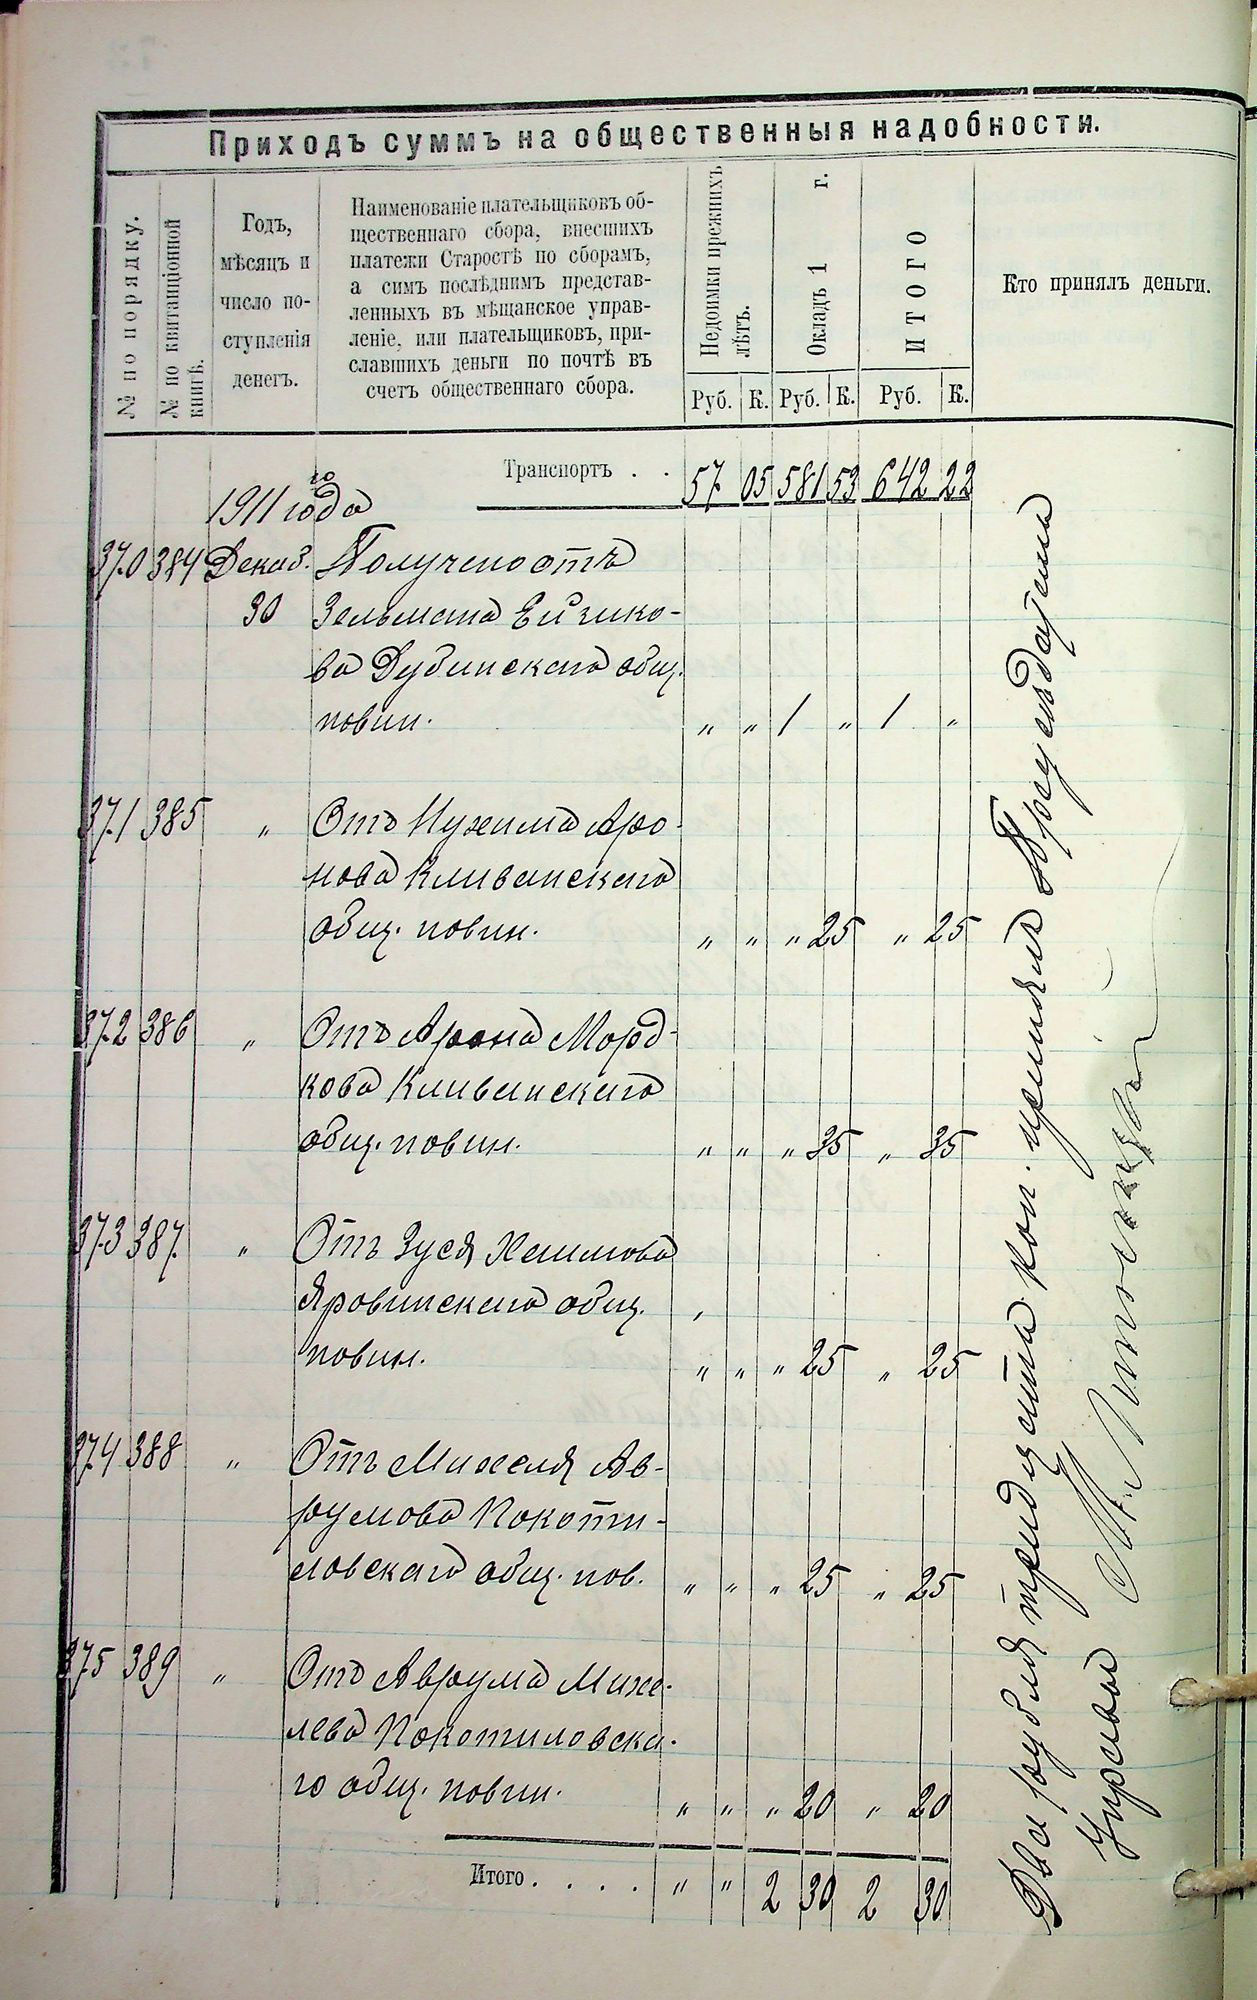 Приходъ суммъ на общественныя надобности.
№ по порядку.
№ по квитанціонной
книгѣ.
Годъ,
мѣсяцъ и
число по-
ступленія
денегъ.
Наименованіе плательщиковъ об-
щественнаго сбора, внесшихъ
платежи Старостѣ по сборамъ,
а симъ послѣднимъ представ-
ленныхъ въ мѣщанское управ-
леніе, или плательщиковъ, при-
славшихъ деньги по почтѣ въ
счетъ общественнаго сбора.
Недоимки прежнихъ
лѣтъ.
Окладъ 1 г.
ИТОГО
Кто принялъ деньги.
Руб. К. Руб. К. Руб. К.
Транспортъ . . 57 05 581 53 642 22
1911 го года
370 384 Декаб. Получено отъ
30 Зельмана Ейзико-
ва Дубинскаго общ.
повин. " " 1 " 1 "
371 385 " Отъ Нухима Аро-
нова Кливанскаго
общ. повин. " " " 25 " 25
372 386 " Отъ Арона Морд-
кова Кливанскаго
общ. повин. " " " 35 " 35
373 387 " Отъ Зуся Хаимова
Яровинскаго общ.
повин. " " " 25 " 25
374 388 " Отъ Михеля Ав-
румова Покоти-
ловскаго общ. пов. " " " 25 " 25
375 389 " Отъ Аврума Михе-
лева Покотиловска-
го общ. повин. " " " 20 " 20
Итого . . . . " " 2 30 2 30
Два рубля тридцать коп. принялъ Предсѣдатель
Управы